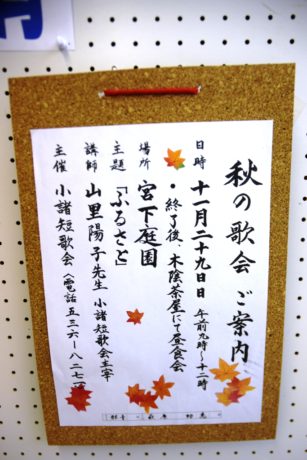 秋の歌会 ご案内
日時 十一月二十九日日 午前九時〜十二時
・終了後、木陰茶屋にて昼食会
場所 宮下庭園
主題 「ふるさと」
講師 山里陽子先生 小諸短歌会主宰
主催 小諸短歌会 (電話 五三六ー八二七